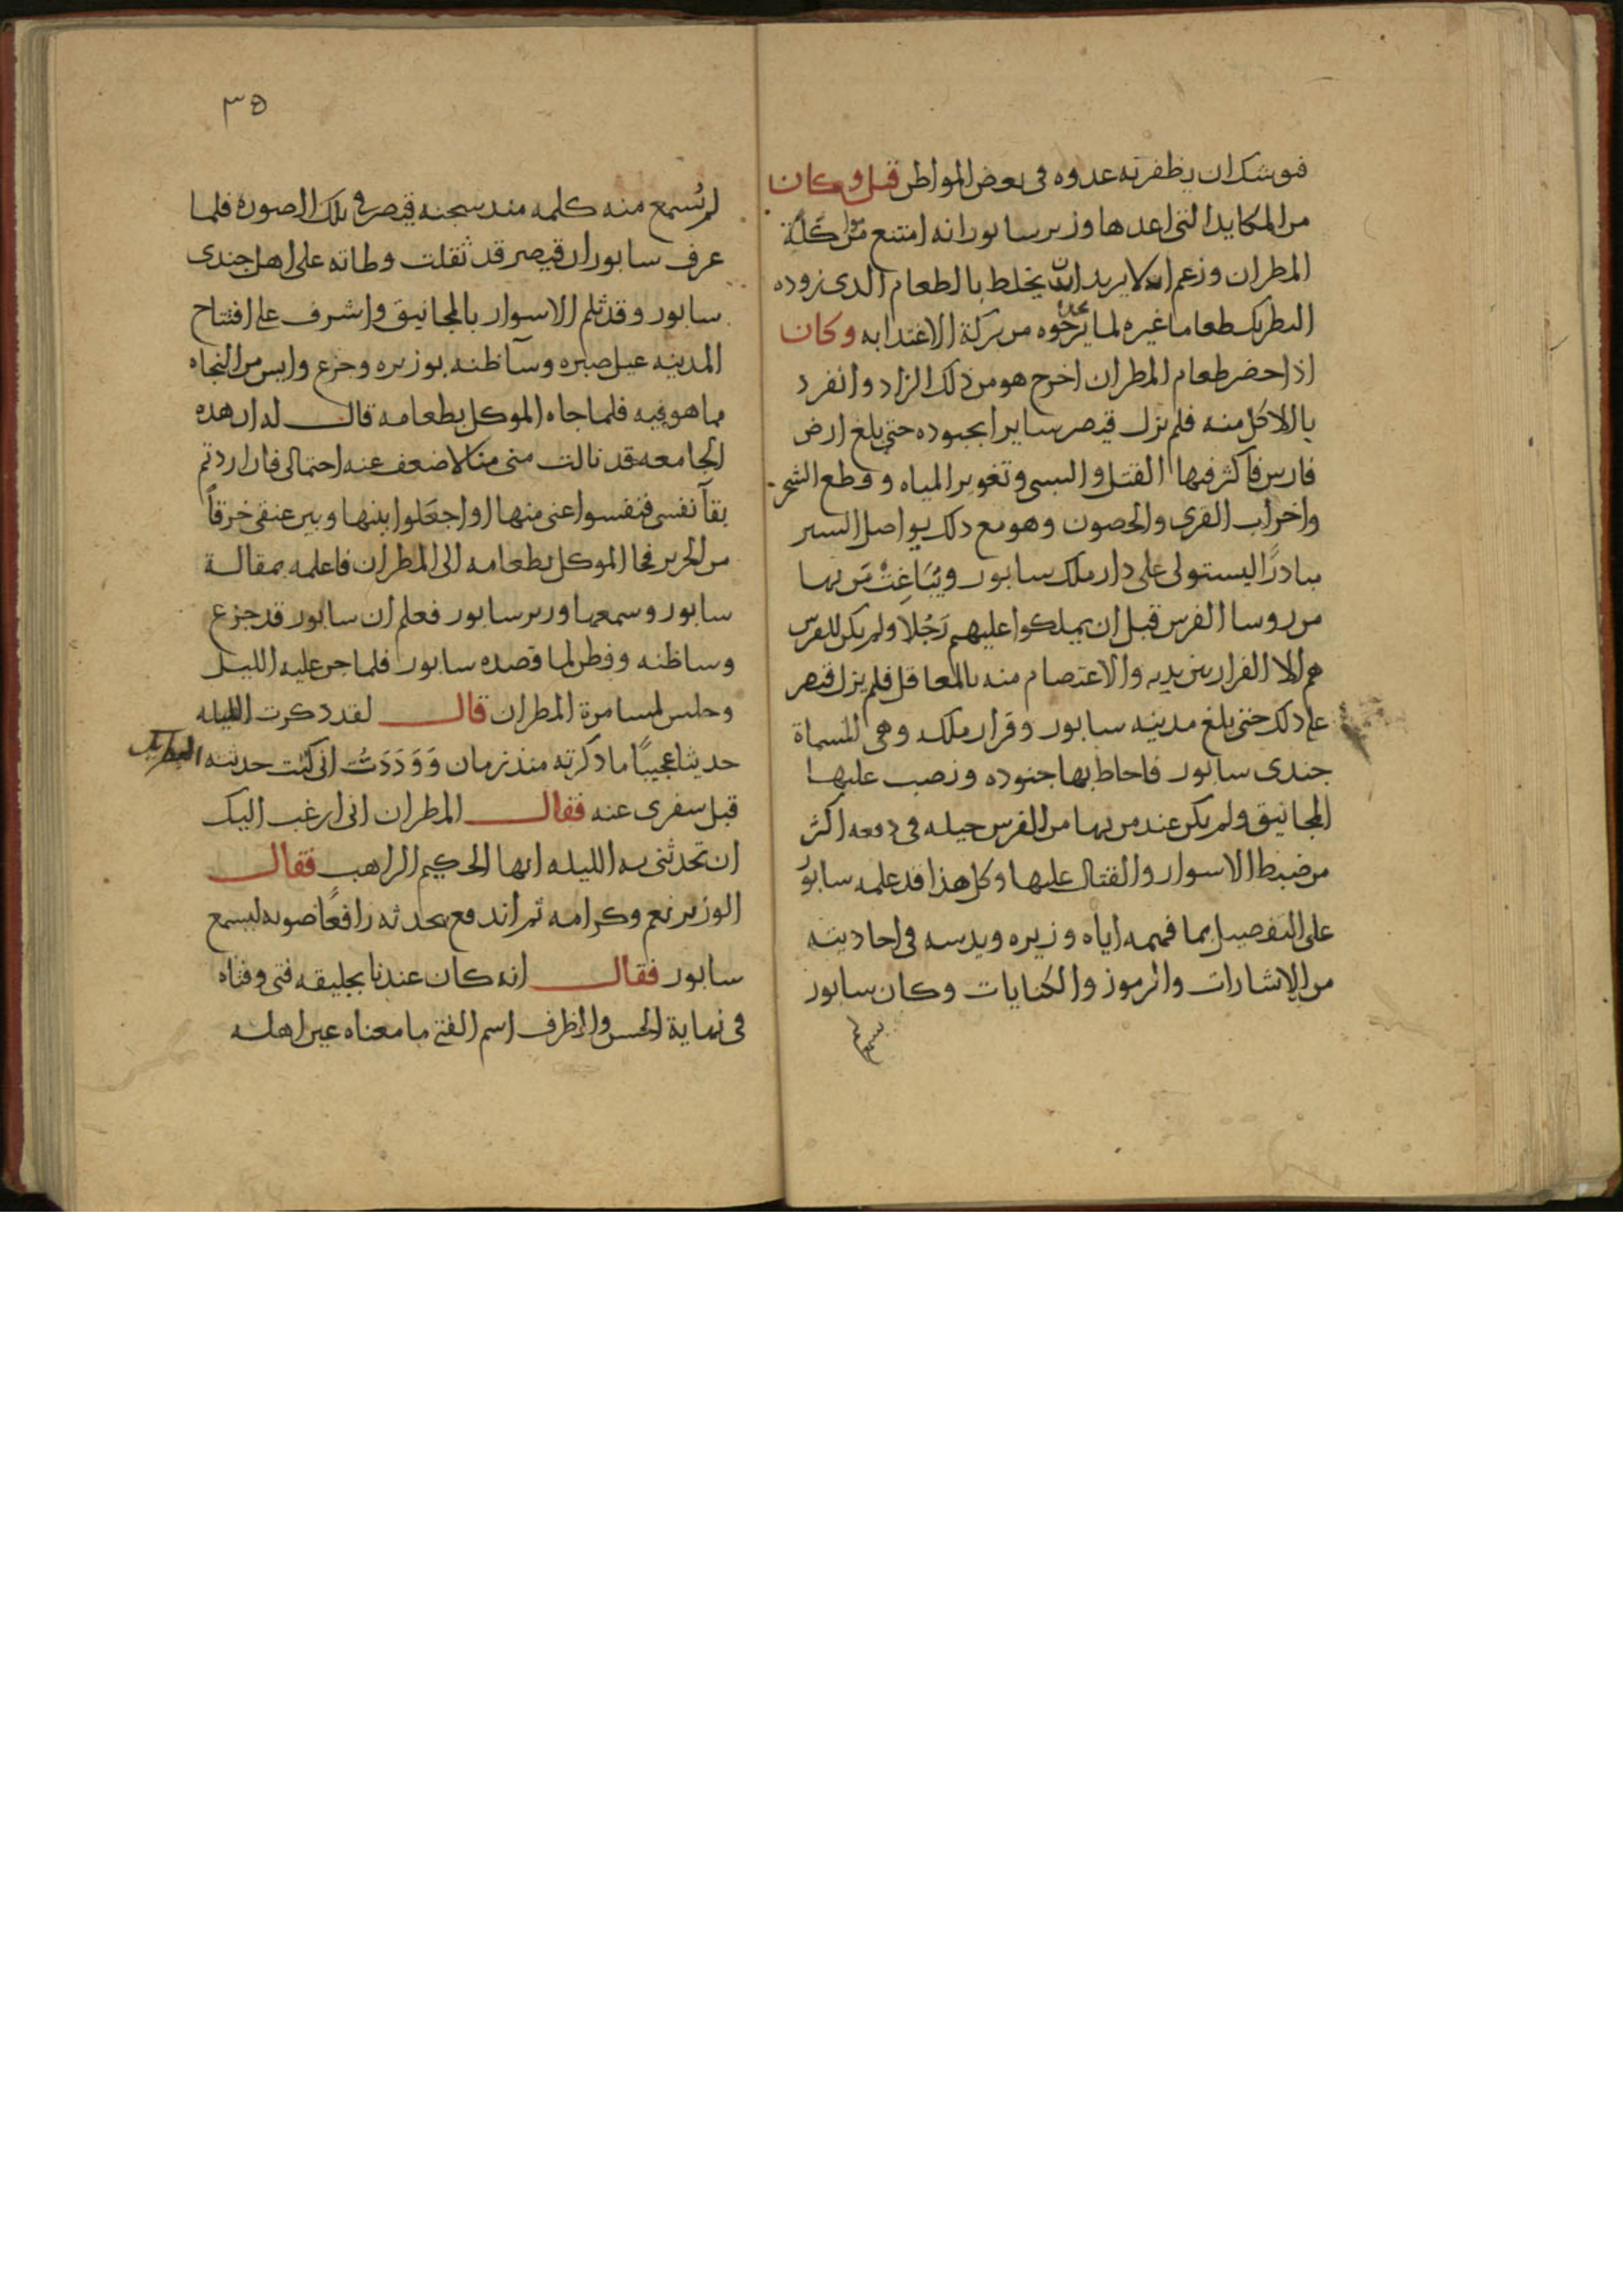 فيوشك ان يظفر به عدوه فى بعض المواطن قيل وكان
من المكايد التى اعدها وزير سابور انه امتنع من مواكلة
المطران وزعم انه لا يريد ان يخلط بالطعام الدى زوده
البطريك طعاما غيره لما يرجوه من بركة الاغتدا به وكان
اذا حضر طعام المطران اخرج هو من ذلك الزاد وانفرد
بالاكل منه فلم يزل قيصر سايرا بجنوده حتى بلغ ارض
فارس فاكثر فيها القتل والسبى وتغوير المياه وقطع الشجر
واخراب القرى والحصون وهو مع دلك يواصل السير
مبادرًا ليستولى على دار ملك سابور ويُبَاغِتْ مَن بها
من روسا الفرس قبل ان يملكوا عليهم رَجُلا ولم يكن للفرس
هم الا الفرار بين يديه والاعتصام منه بالمعاقل فلم يزل قيصر
على دلك حتى بلغ مدينه سابور وقرار ملكه وهى المسماة
جندى سابور فاحاط بها جنوده ونصب عليها
المجانيق ولم يكن عند من بها من الفرس حيله فى دفعه اكثر
من ضبط الاسوار والقتال عليها وكل هذا قد علمه سابور
على التفصيل بما فهمه اياه وزيره ويدسه فى احاديثه
من الاشارات والرموز والكنايات وكان سابور
لم يسمع
٣٥
لم يُسمع منه كلمه مند سجنه قيصر فى تلك الصوره فلما
عرف سابور ان قيصر قد ثقلت وطاته على اهل جندى
سابور وقد ثلم الاسوار بالمجانيق واشرف على افتتاح
المدينه عيل صبره وسآ ظنه بوزيره وجزع وايس من النجاه
مما هو فيه فلما جاه الموكل بطعامه قال له ان هده
الجامعه قد نالت منى منالا ضعف عنه احتمالى فان اردتم
بقآ نفسى فنفسوا عنى منها او اجعَلوا بينها وبين عنقى خرقاً
من الحرير فجا الموكل بطعامه الى المطران فاعلمه بمقالة
سابور وسمعها وزير سابور فعلم ان سابور قد جزع
وسا ظنه وفطن لما قصده سابور فلما جن عليه الليل
وجلس لمسامرة المطران قال لقد دكرت الليله
حديثا عجيبًا ما دكرته منذ زمان وَوَدَدَتُ انى كنت حدثته البطريك
قبل سفرى عنه فقال المطران انى ارغب اليك
ان تحدثنى به الليله ايها الحكيم الراهب فقال
الوزير نعم وكرامه ثم اندفع يحدثه رافعًا صوته ليسمع
سابور فقال انه كان عندنا بجليقه فتى وفتاه
فى نهاية الحسن والظرف اسم الفتى ما معناه عين اهله